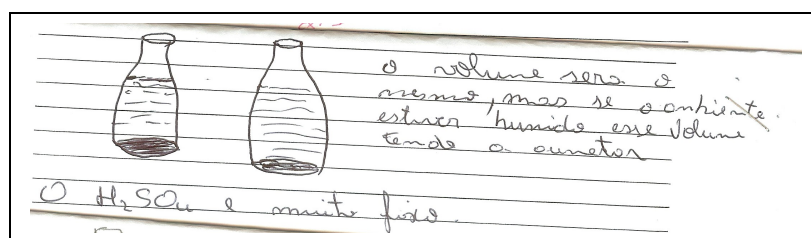 o volume sera o
mesmo, mas se o ambiente
estiver humido esse volume
tende a aumetar
O H₂SO₄ e muito fixo.